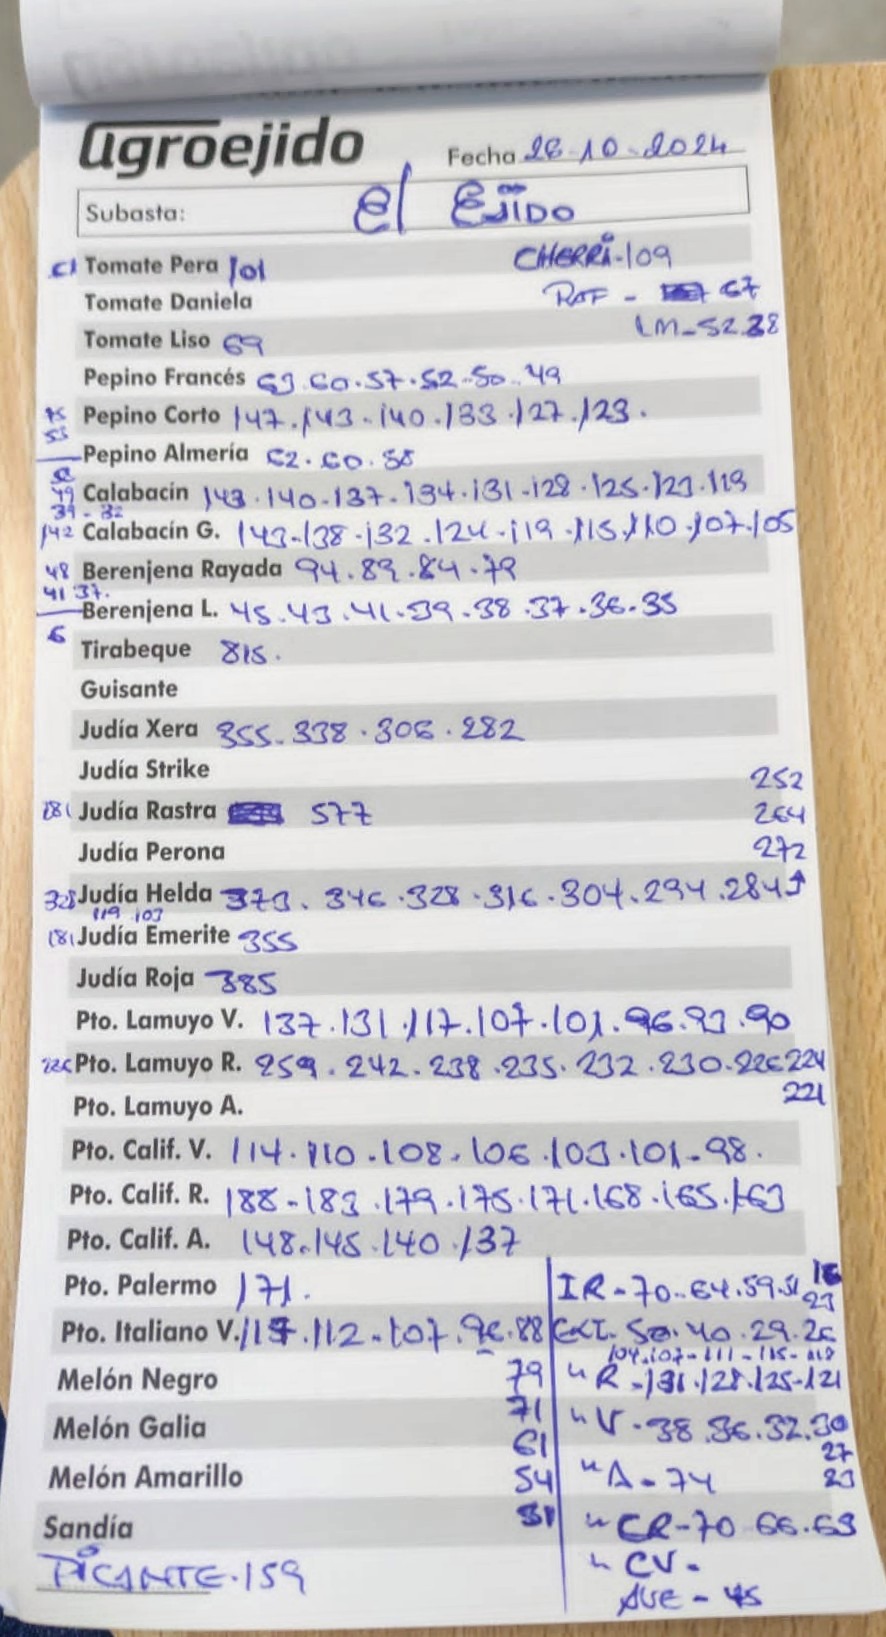 agroejido
Fecha 26-10-2024
Subasta: El EJIDO
C1 Tomate Pera 101 CHERRI-109
Tomate Daniela RAF - 67
Tomate Liso 69 LM-52.38
Pepino Francés 63.60.57.52-50.49
75 Pepino Corto 147.143-140.133.127.123.
55
Pepino Almería 62.60.58
49 Calabacín 143.140-137-134.131-128.125.123.119
39-32
142 Calabacín G. 143-138-132.124-119.115.110.107.105
48 Berenjena Rayada 94.89.84.79
41 37.
Berenjena L. 45.43.41.39.38.37.36.35
6
Tirabeque 815.
Guisante
Judía Xera 355-338.306.282
Judía Strike
252
Judía Rastra 577
264
Judía Perona
272
328 Judía Helda 373.346.328.316.304.294.284
119 103
181 Judía Emerite 355
Judía Roja 385
Pto. Lamuyo V. 137.131.117.107.101.96.93.90
226 Pto. Lamuyo R. 259.242.238.235.232.230.226 224
221
Pto. Lamuyo A.
Pto. Calif. V. 114.110.108.106.103.101-98.
Pto. Calif. R. 188-183.179.175.171.168.165.163
Pto. Calif. A. 148.145.140.137
Pto. Palermo 171. IR-70-64.59.51 16
23
Pto. Italiano V. 117.112-107.96.88 EXT. 50.40.29.26
104.107-111-115-118
Melón Negro 79 " R-131.128.125-121
71
Melón Galia " V-38.36.32.30
61 27
Melón Amarillo 54 " A-74 23
Sandía 31 " CR-70 66.63
PICANTE.159 " CV-
AVE-45